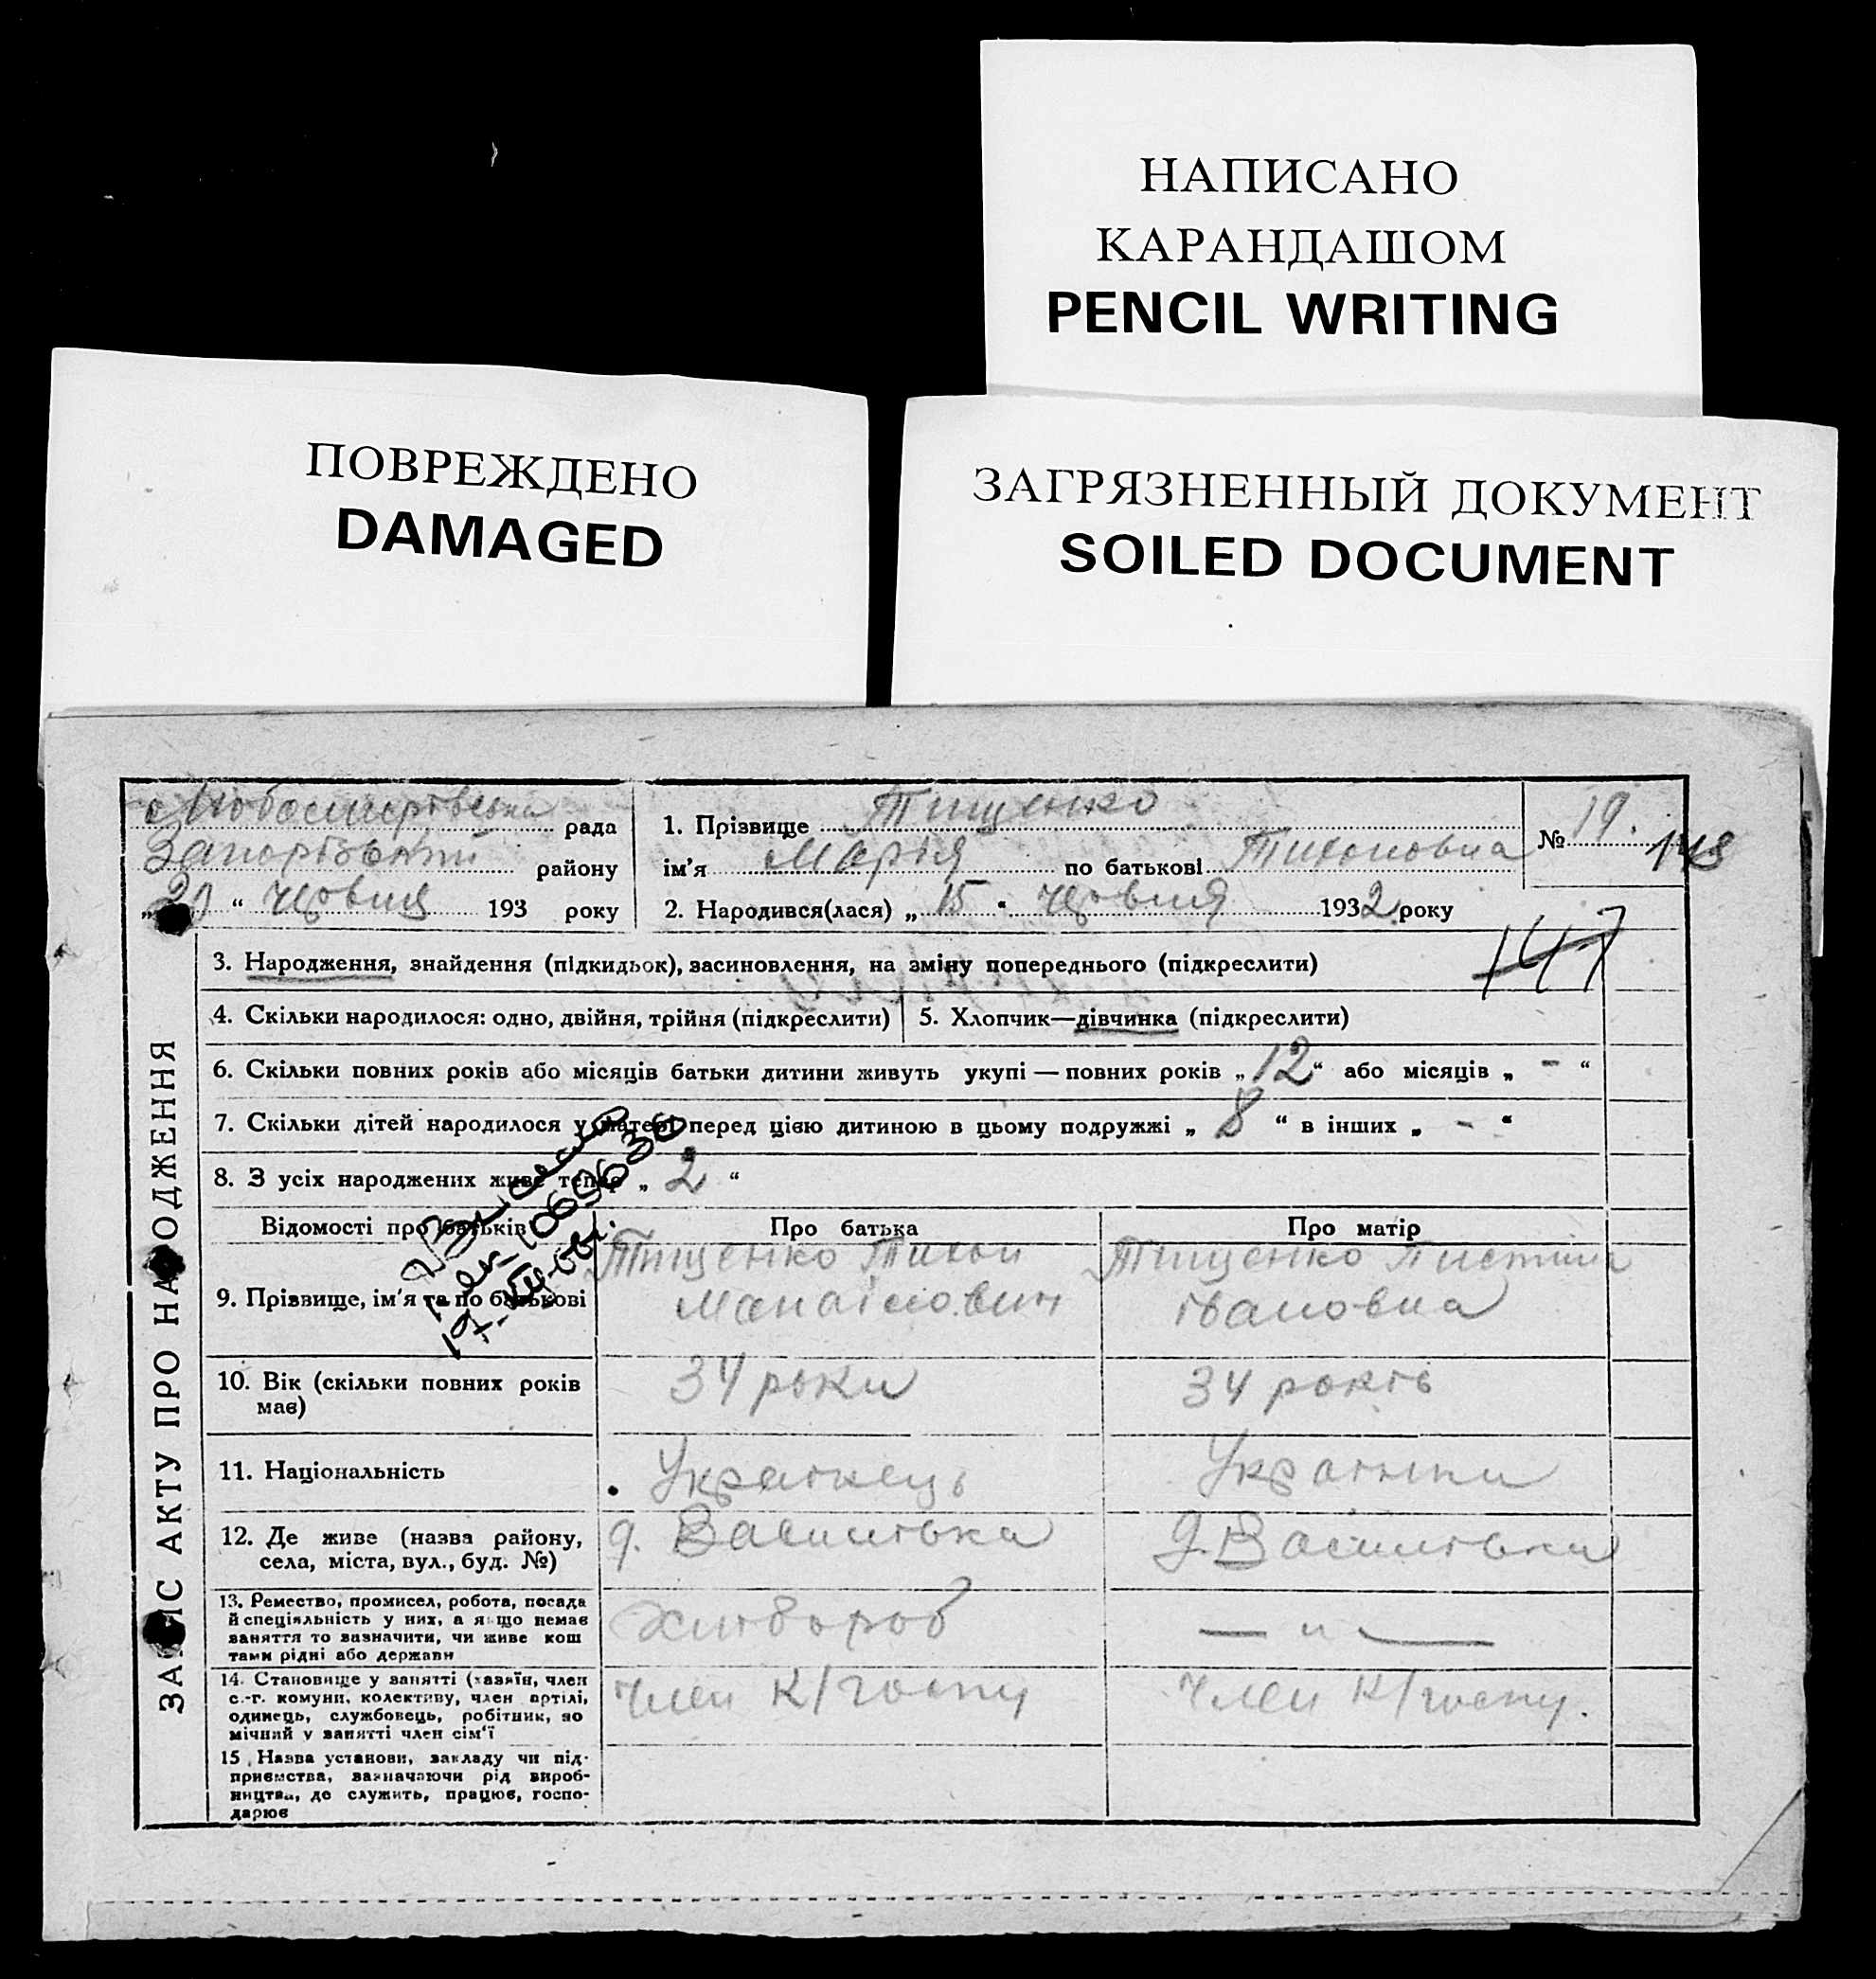 НАПИСАНО
КАРАНДАШОМ
PENCIL WRITING
ПОВРЕЖДЕНО
DAMAGED
ЗАГРЯЗНЕННЫЙ ДОКУМЕНТ
SOILED DOCUMENT
рада
району
" червня 193 року
1. Прізвище Тищенко
ім'я Марія по батькові Тихоновна
2. Народився(лася) „ 15 " червня 1932 року
№ 19.
148
147
ЗАПИС АКТУ ПРО НАРОДЖЕННЯ
3. Народження, знайдення (підкидьок), засиновлення, на зміну попереднього (підкреслити)
4. Скільки народилося: одно, двійня, трійня (підкреслити)
5. Хлопчик—дівчинка (підкреслити)
6. Скільки повних років або місяців батьки дитини живуть укупі — повних років „ 12 “ або місяців „ - “
7. Скільки дітей народилося у матері перед цією дитиною в цьому подружжі „ 8 “ в інших „ - “
8. З усіх народжених живе тепер „ 2 “
Відомості про батьків
Про батька
Про матір
9. Прізвище, ім'я та по батькові
Тищенко Тихон
Тищенко
івановна
10. Вік (скільки повних років
має)
34 роки
34 років
11. Національність
Українець
Українка
12. Де живе (назва району,
села, міста, вул., буд. №)
д. Василівка
д. Василівка
13. Ремество, промисел, робота, посада
й спеціяльність у них, а якщо немає
заняття то зазначити, чи живе кош
тами рідні або держави
Хлібороб
— „ —
14. Становище у занятті (хазяїн, член
с.-г. комуни, колективу, член артілі,
одинець, службовець, робітник, по
мічний у занятті член сім'ї
Член к/госпу
Член к/госпу.
15. Назва установи, закладу чи під-
приємства, зазначаючи рід вироб-
ництва, де служить, працює, госпо-
дарює